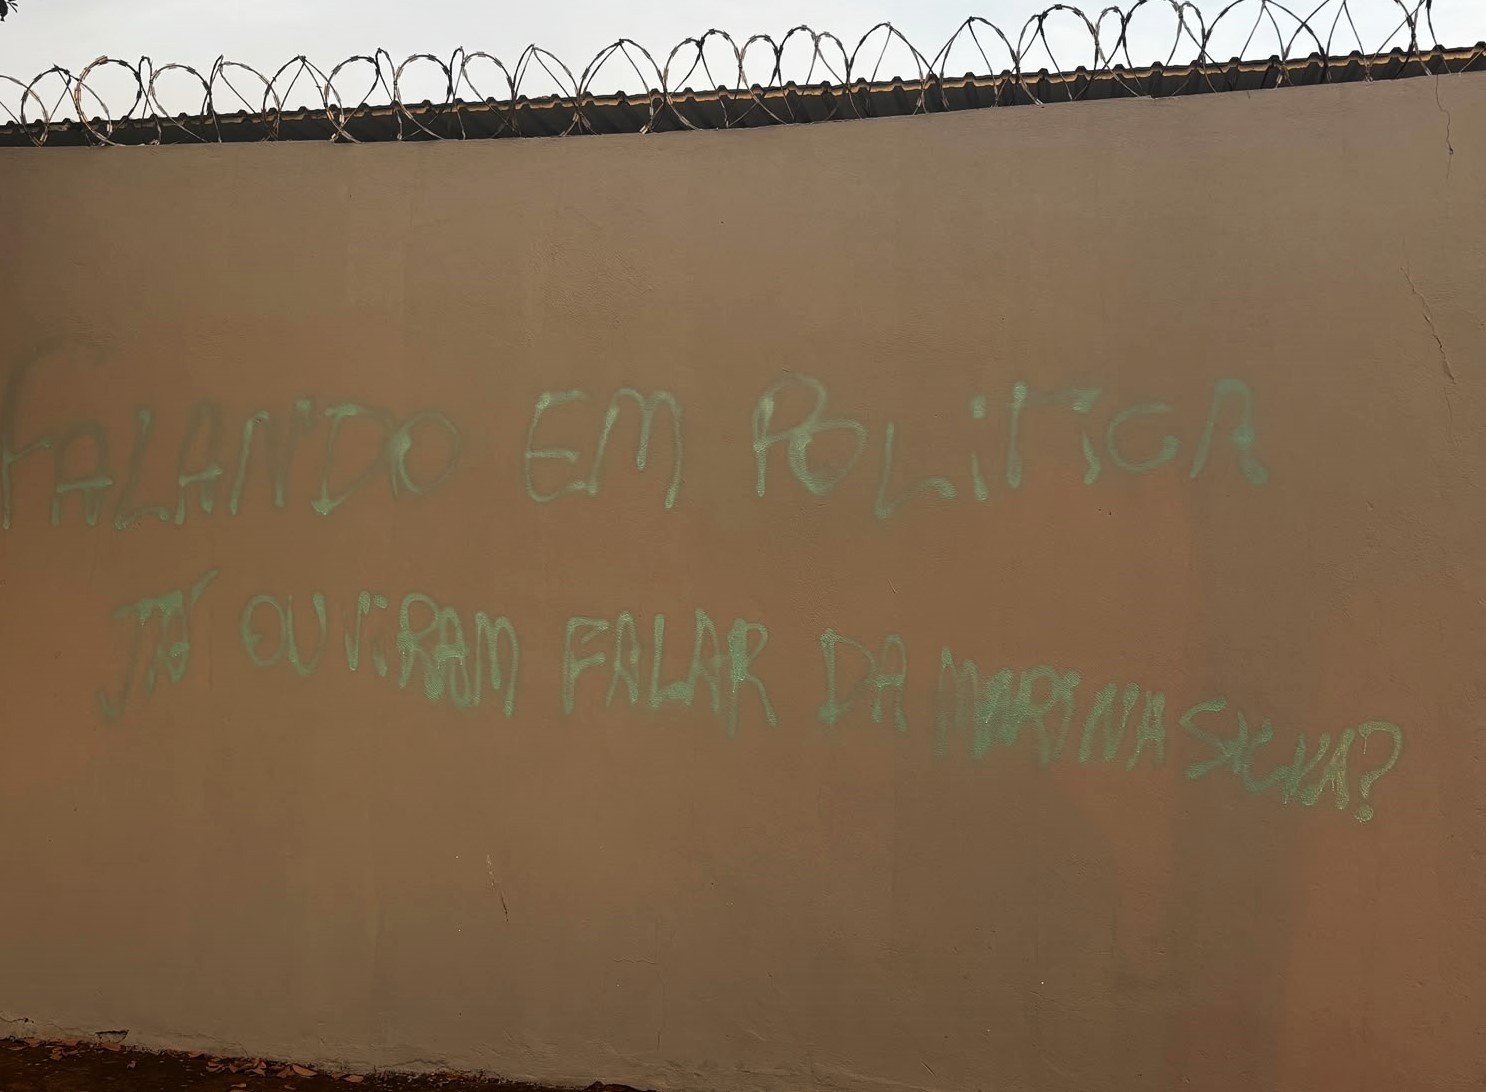 FALANDO EM POLiTiCA
JÁ OUViRAM FALAR DA MARINA SILVA?